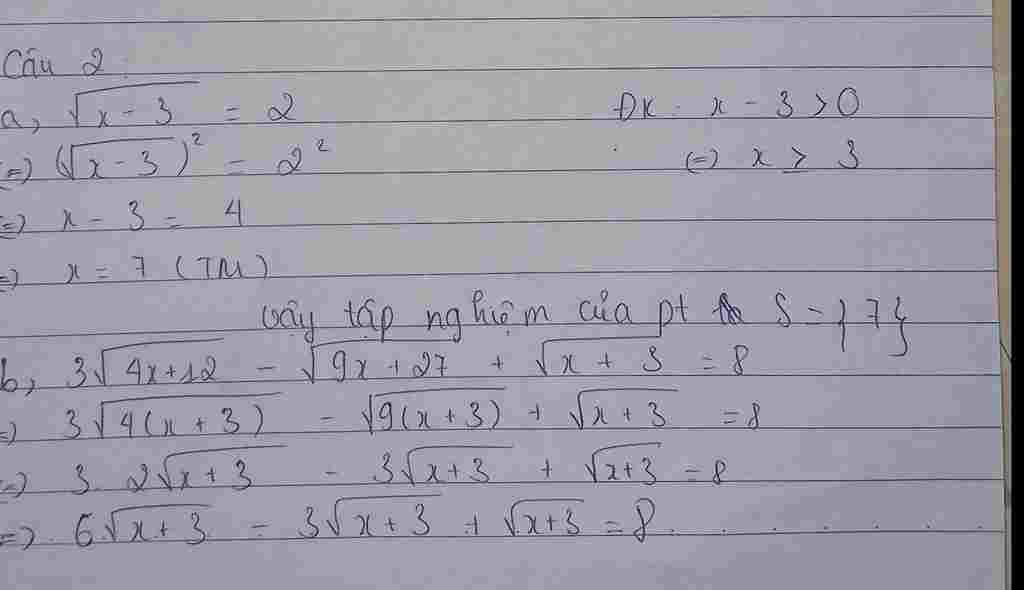 Câu 2:
a, √(x - 3) = 2 ĐK: x - 3 > 0
(=) (√(x - 3))² = 2² (=) x ≥ 3
(=) x - 3 = 4
(=) x = 7 (TM)
Vậy tập nghiệm của pt là S = {7}
b, 3√(4x+12) - √(9x+27) + √(x + 3) = 8
(=) 3√(4(x + 3)) - √(9(x+3)) + √(x+3) = 8
(=) 3. 2√(x+3) - 3√(x+3) + √(x+3) = 8
(=) 6√(x+3) - 3√(x+3) + √(x+3) = 8